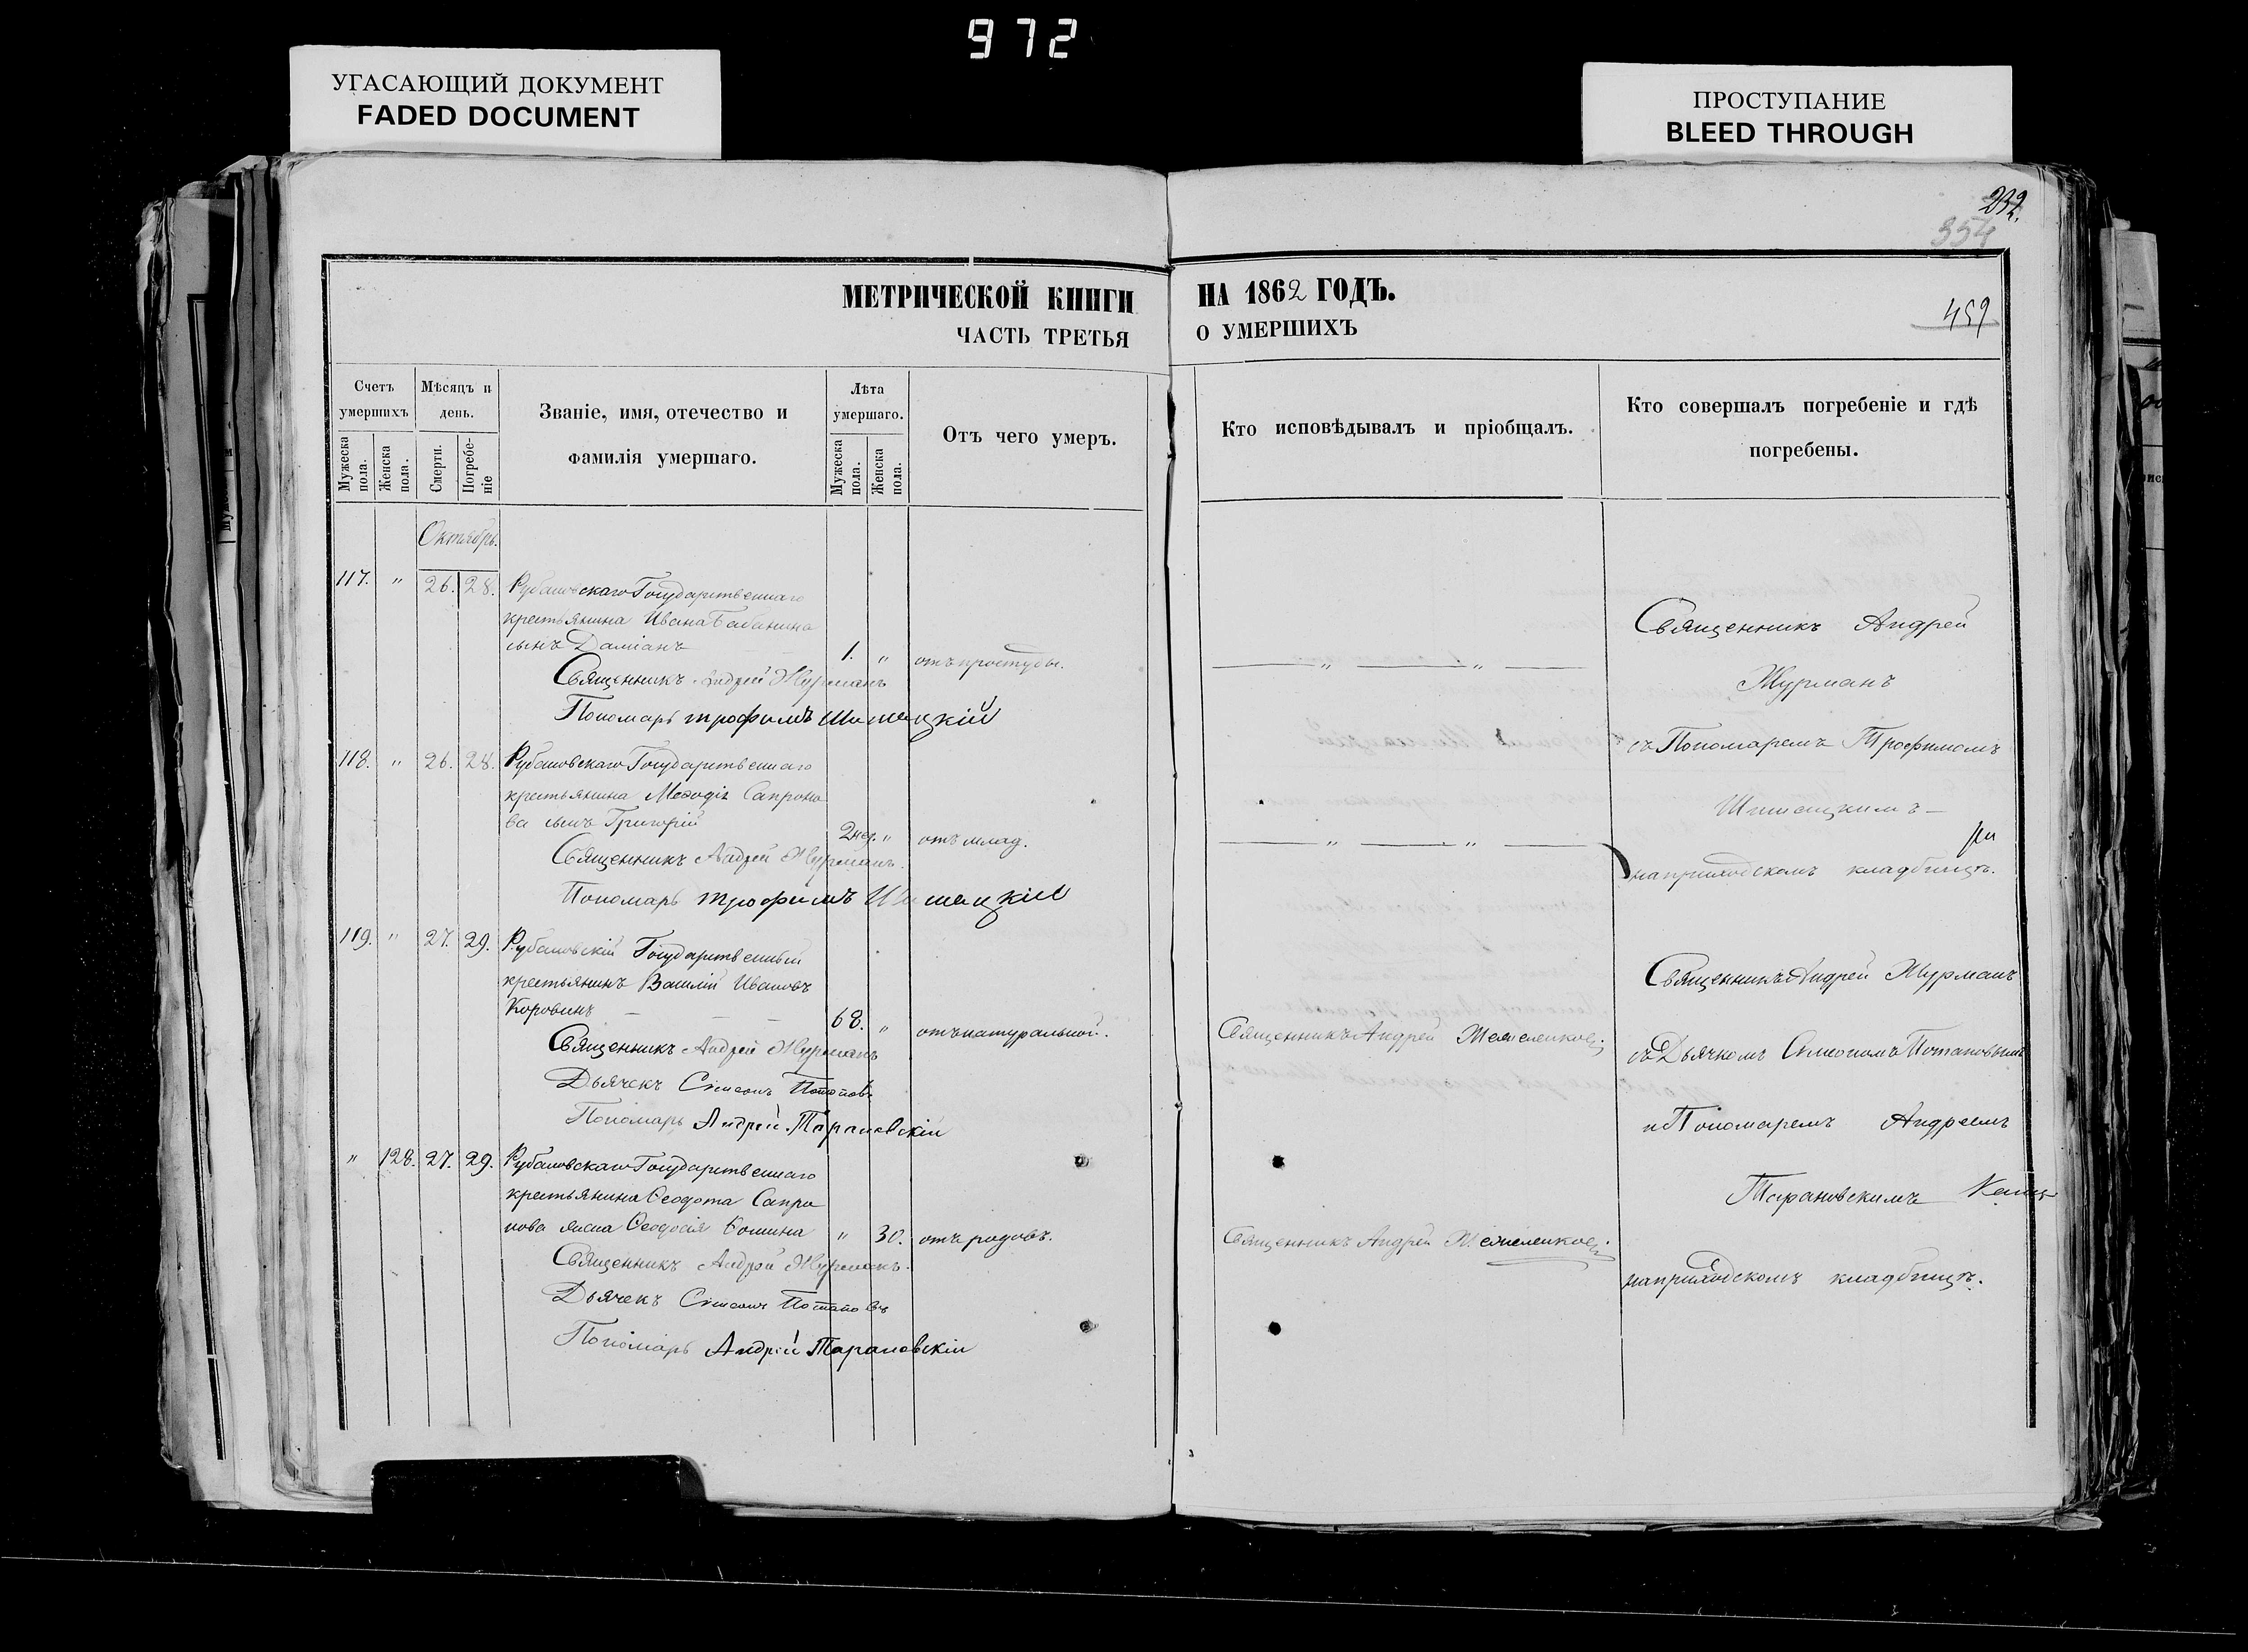 972
УГАСАЮЩИЙ ДОКУМЕНТ
FADED DOCUMENT
ПРОСТУПАНИЕ
BLEED THROUGH
232.
354
459
МЕТРИЧЕСКОЙ КНИГИ НА 1862 ГОДЪ.
ЧАСТЬ ТРЕТЬЯ О УМЕРШИХЪ
Счетъ умершихъ
Мужеска пола.
Женска пола.
Мѣсяцъ и день.
Смерти.
Погребе-ніе
Званіе, имя, отечество и
фамилія умершаго.
Лѣта умершаго.
Мужеска пола.
Женска пола.
Отъ чего умеръ.
Кто исповѣдывалъ и пріобщалъ.
Кто совершалъ погребеніе и гдѣ
погребены.
Октябрь.
117. " 26. 28. Рубановскаго Государственнаго
крестьянина Ивана Бабанина
сынъ Даміанъ 1. " отъ простуды.
Священникъ Андрей Журманъ
Пономарь Трофимъ Шишацкій
Священникъ Андрей
Журманъ
съ Пономаремъ Трофимомъ
Шишацкимъ
на приходскомъ кладбищѣ.
118. " 26. 28. Рубановскаго Государственнаго
крестьянина Меѳодія Сапроно
ва сынъ Григорій 2 нед. " отъ млад.
Священникъ Андрей Журманъ.
Пономарь Трофимъ Шишацкій
119. " 27. 29. Рубановскій Государственный
крестьянинъ Василій Ивановъ
Коровинъ 68. " отъ натуральной.
Священникъ Андрей Журманъ
Дьячекъ Сімеонъ Потаповъ
Пономарь Андрей Тарановскій
Священникъ Андрей
Священникъ Андрей Журманъ
съ Дьячкомъ Симеономъ Потаповымъ
и Пономаремъ Андреемъ
Тарановскимъ
на приходскомъ кладбищѣ.
" 128. 27. 29. Рубановскаго Государственнаго
крестьянина Ѳеодота Сапро
нова жена Ѳеодосія " 30. отъ родовъ.
Священникъ Андрей Журманъ.
Дьячекъ Сімеонъ Потаповъ
Пономарь Андрей Тарановскій
Священникъ Андрей